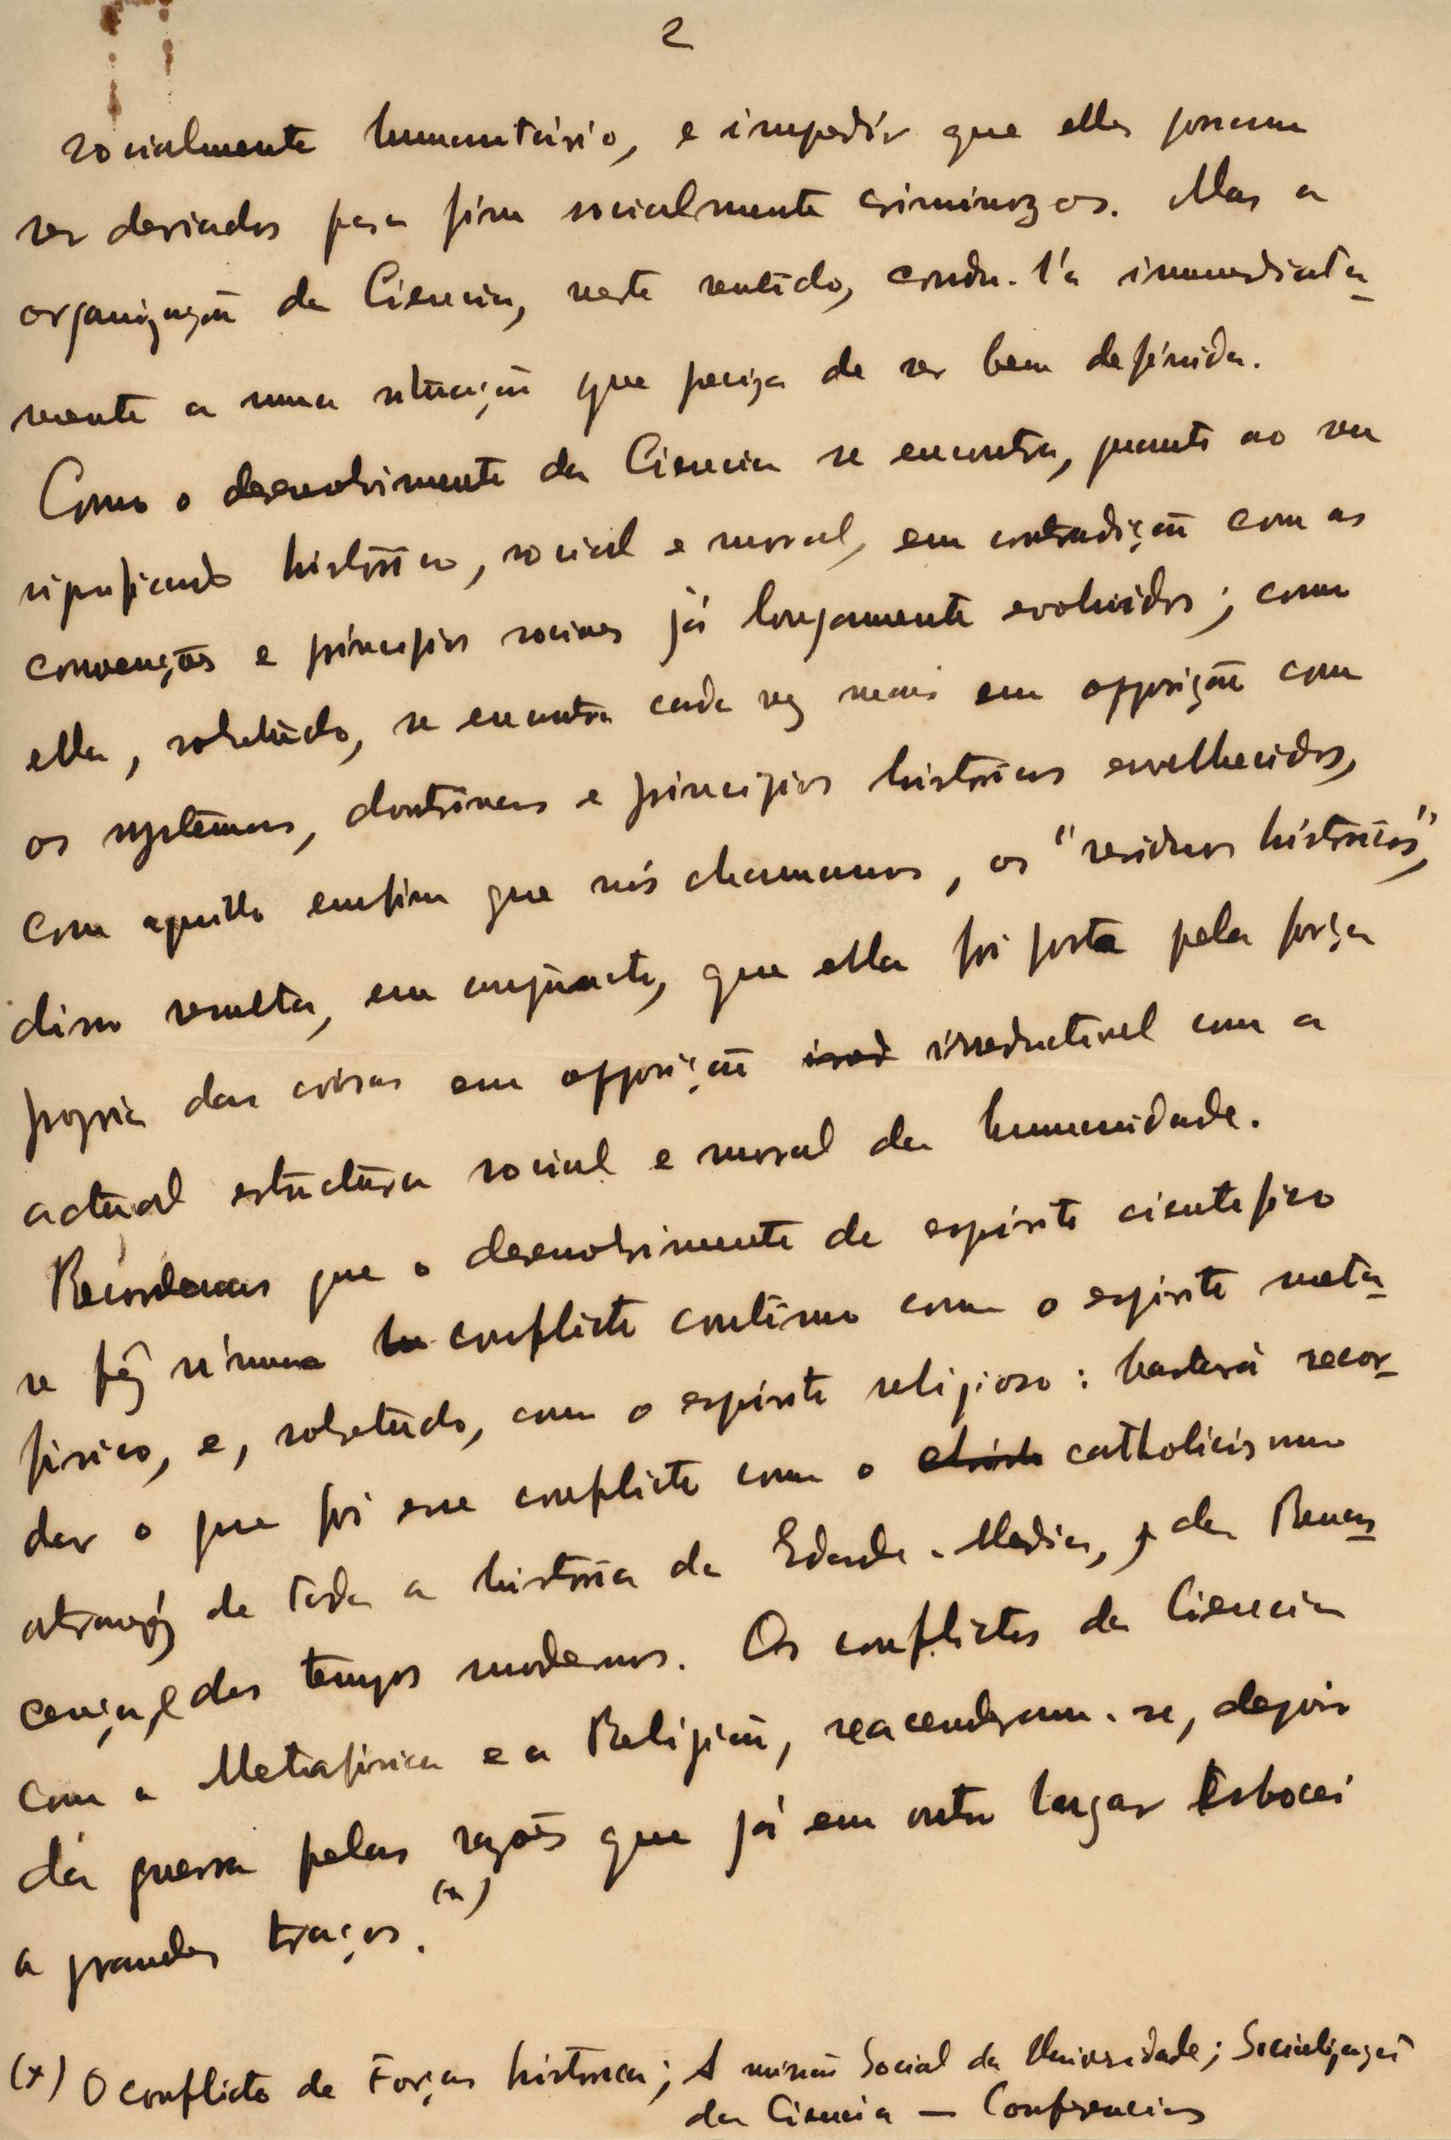 2
socialmente humanitário, e impedir que elles possam
ser desviados para fins socialmente criminozos. Mas a
organização da Ciencia, neste sentido, condu-l'a immediata-
mente a uma situação que peciza de ser bem definida.
Como o desenvolvimento da Ciencia se encontra, quanto ao seu
significado historico, social e moral, em contradição com as
convenções e principios sociaes já longamente evoluidos; como
ella, sobretudo, se encontra cada vez mais em opposição com
os systemas, doutrinas e principios historicos envelhecidos,
com aquillo emfim que nós chamamos, os "residuos históricos",
disso resulta, em conjuncto, que ella foi posta pela força
propria das coisas em opposição irred irreductivel com a
actual estructura social e moral da humanidade.
Recordemos que o desenvolvimento do espirito cientifico
se fez n'uma lu conflicto continuo com o espirito meta-
fisico, e, sobretudo, com o espirito religioso: bastará recor-
dar o que foi esse conflicto com o catholicismo
atravez de toda a história da Edade-Media, da Renas-
cença, e dos tempos modernos. Os conflictos da Ciencia
com a Metafisica e a Religião, reacenderam-se, depois
da guerra pelas razões que já em outro lugar esbocei
a grandes traços. (x)
(x) O conflicto de Forças historica; A missão Social da Universidade; Socialização
da Ciencia — Conferencias